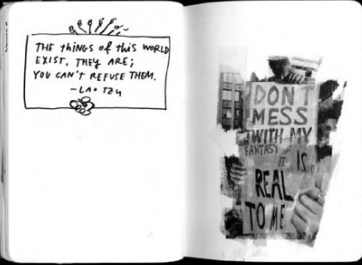 THE thiNgs of this WORLD
EXIST, THEY ARE;
YOU CAN'T REFUSE THEM.
-LAO TZU
DON'T
MESS
WITH MY
FANTASY
IT IS
REAL
TO ME